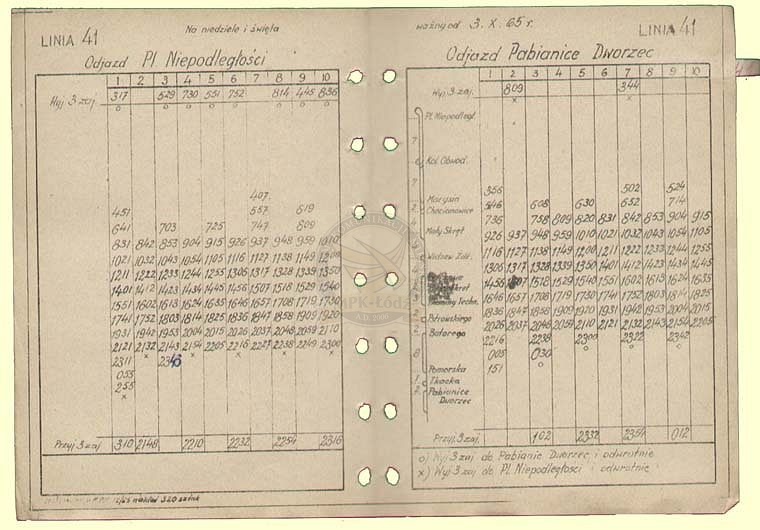 LINIA 41
Na niedziele i święta
Odjazd Pl. Niepodległości
1 2 3 4 5 6 7 8 9 10
Wyj. 3 zaj. 317 529 730 551 752 814 445 836
o o o o o o o o
407
451 557 619
641 703 725 747 809
831 842 853 904 915 926 937 948 959 1010
1021 1032 1043 1054 1105 1116 1127 1138 1149 1200
1211 1222 1233 1244 1255 1306 1317 1328 1339 1350
1401 1412 1423 1434 1445 1456 1507 1518 1529 1540
1551 1602 1613 1624 1635 1646 1657 1708 1719 1730
1741 1752 1803 1814 1825 1836 1847 1858 1909 1920
1931 1942 1953 2004 2015 2026 2037 2048 2059 2110
2121 2132 2143 2154 2205 2216 2227 2238 2249 2300
2311 x 2316 x x x x x
033
255
x
Przyj. 3 zaj 310 2148 2210 2232 2254 2316
nakład 320 sztuk
ważny od 3. X. 65 r.
LINIA 41
Odjazd Pabianice Dworzec
1 2 3 4 5 6 7 8 9 10
Wyj. 3 zaj. 809 344
x x
Pl. Niepodległ.
7
Kol. Obwod.
7
356 502 524
Marysin
2 Chocianowice 546 608 630 652 714
4 736 758 809 820 831 842 853 904 915
Mały Skręt 926 937 948 959 1010 1021 1032 1043 1054 1105
1116 1127 1138 1149 1200 1211 1222 1233 1244 1255
1306 1317 1328 1339 1350 1401 1412 1423 1434 1445
1456 1507 1518 1529 1540 1551 1602 1613 1624 1635
3 1646 1657 1708 1719 1730 1741 1752 1803 1814 1825
2 Piotrowskiego 1836 1847 1858 1909 1920 1931 1942 1953 2004 2015
2 Batorego 2026 2037 2048 2059 2110 2121 2132 2143 2154 2205
2216 2238 2300 2322 2342
8 005 030 x x x
Pomorska 151 o
1 Tkacka
2 Pabianice
Dworzec
Przyj. 3 zaj. 102 2332 2354 012
o) Wyj 3 zaj do Pabianic Dworzec i odwrotnie
x) Wyj 3 zaj do Pl. Niepodległości i odwrotnie